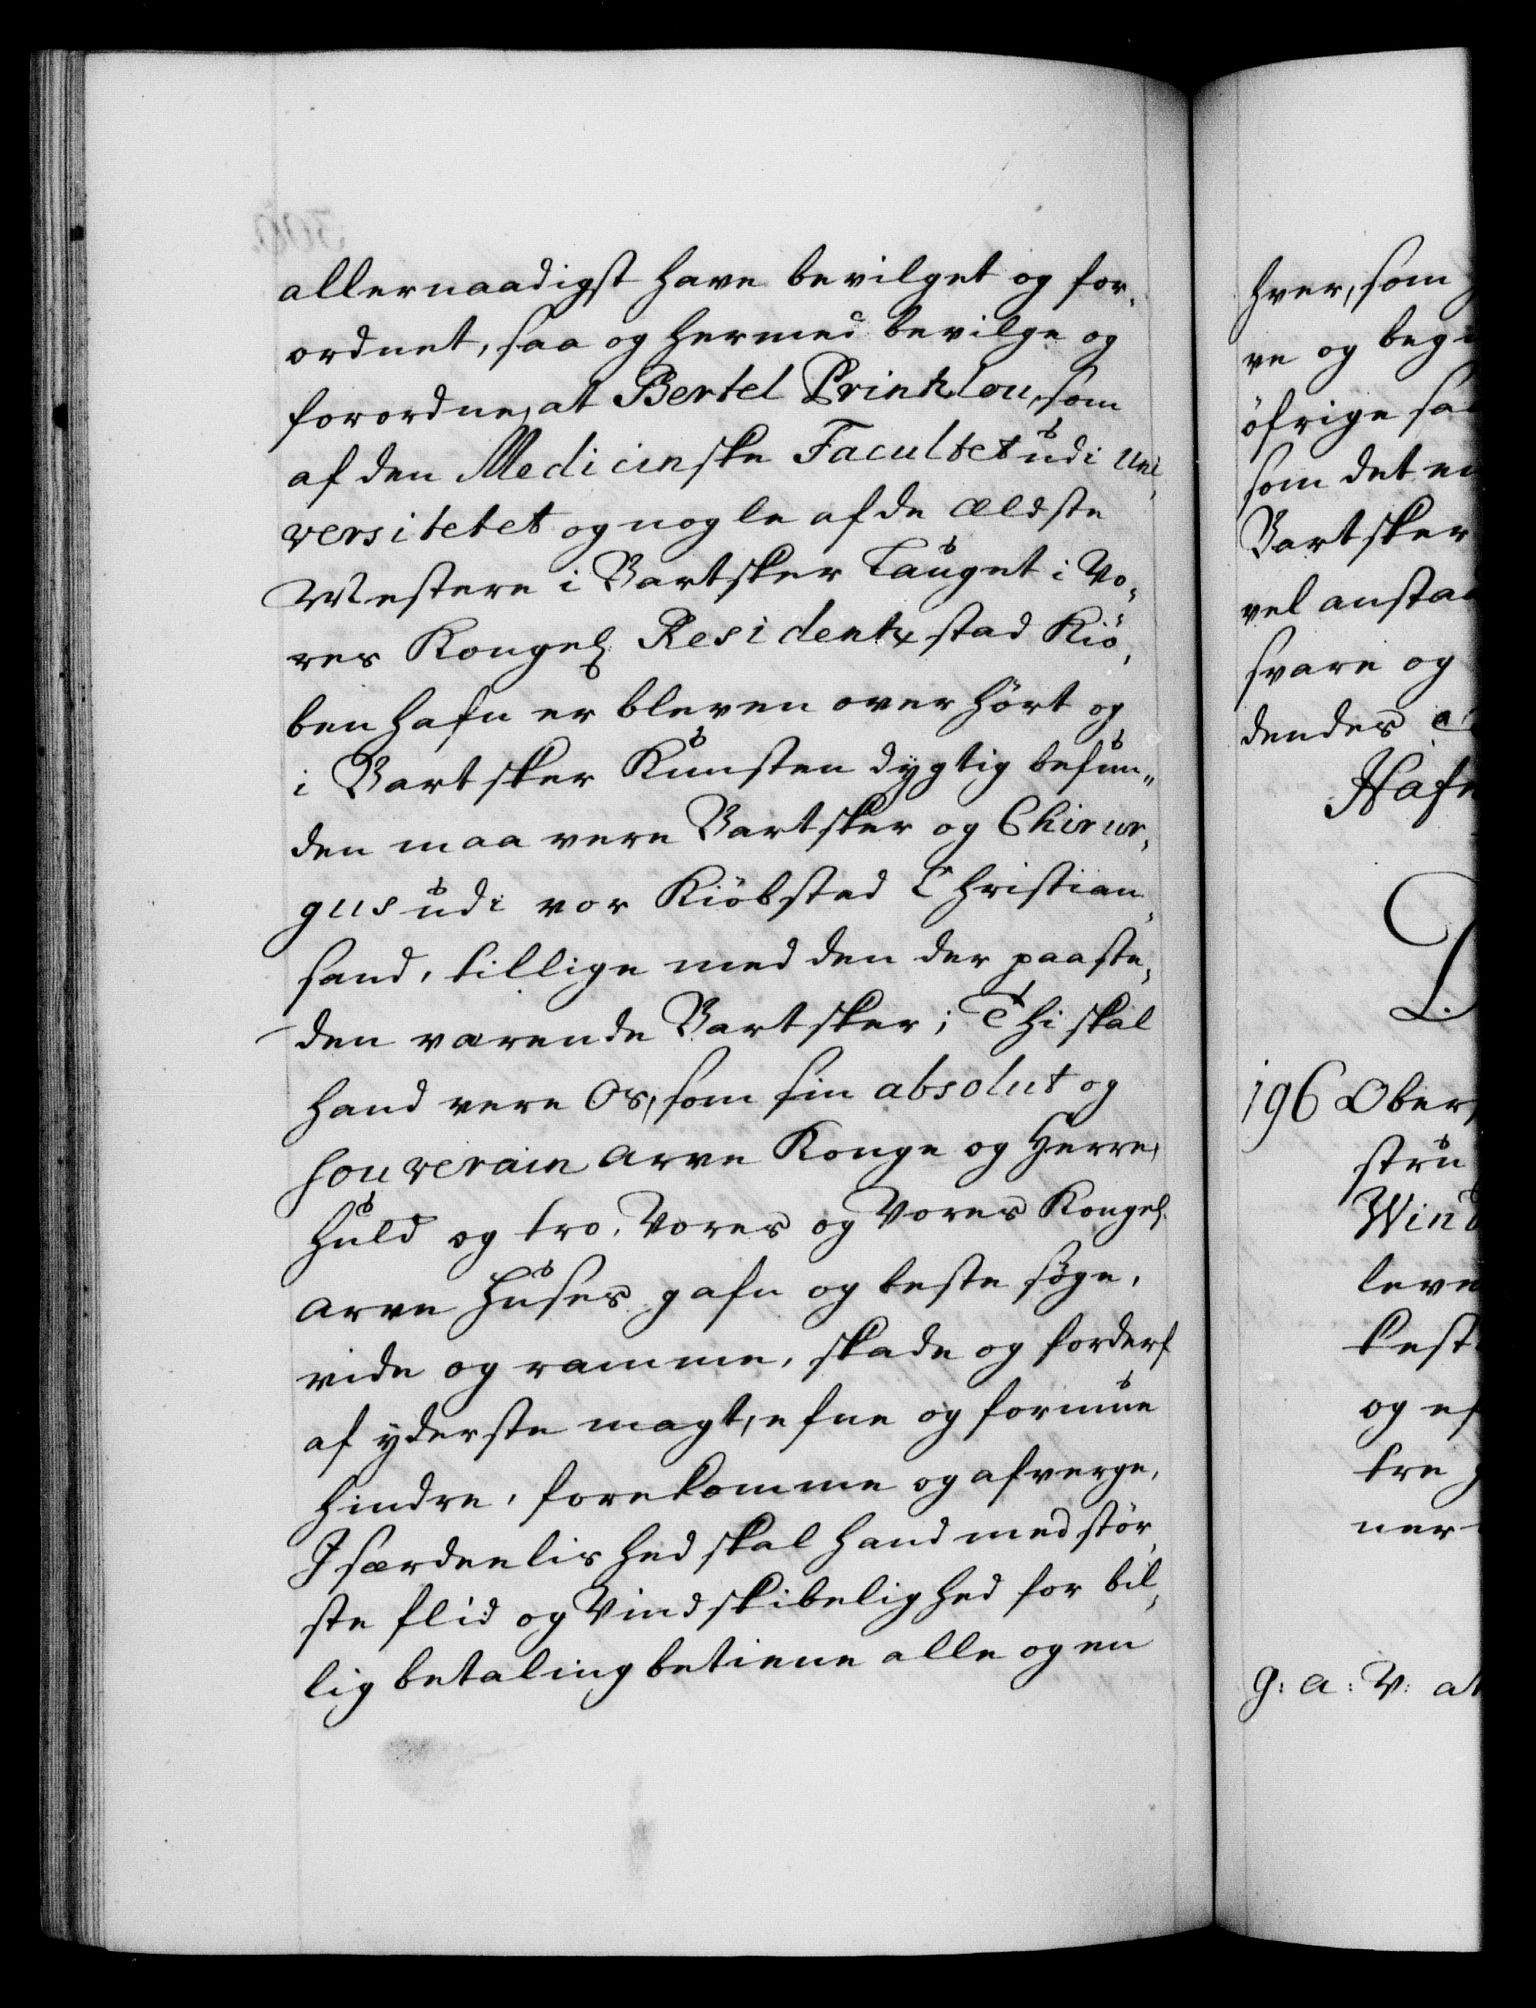 allernaadigst have bevilget og for,
ordnet, saa og hermed bevilge og
forordne, at Bertel Printzlou, som
af den Medicinske Facultet udi Uni,
versitetet og nogle af de ældste
Mestere i Bartsker Lauget i Vo,
res Kongel Residentz stad Kiö,
benhafn er bleven overhört og
i Bartsker Kunsten dygtig befun,,
den maa vere Bartsker og Chirur,
gus udi vor Kiöbsted Christian,
sand, tillige med den der paa ste,
den værende Bartsker; Thi skal
hand vere Os, som sin absolut og
souverain Arve Konge og Herre,
huld og tro, Vores og Vores Kongel.
Arve Huses gafn og beste söge,
vide og ramme, skade og forderf
af yderste magt, efne og formue
hindre, forekomme og afverge,
I særdeelished skal hand med stör,
ste flid og Vindskibelighed for bil,
lig betaling betiene alle og en
hver, som
ve og beg
öfrige
som det
Bartsker
vel
svare og
dendes
Hafn
L.
196 Ober
stru
Wind
leve
og
tre
ner
g: a: V: at